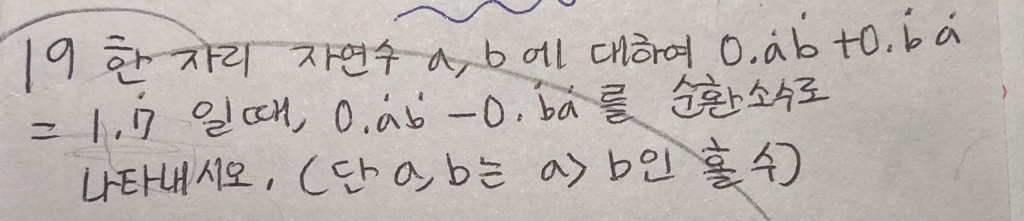 19 한 자리 자연수 a, b에 대하여 0.ȧḃ+0.ḃȧ
= 1.7̇ 일때, 0.ȧḃ-0.ḃȧ를 순환소수로
나타내시오. (단 a, b는 a>b인 홀수)